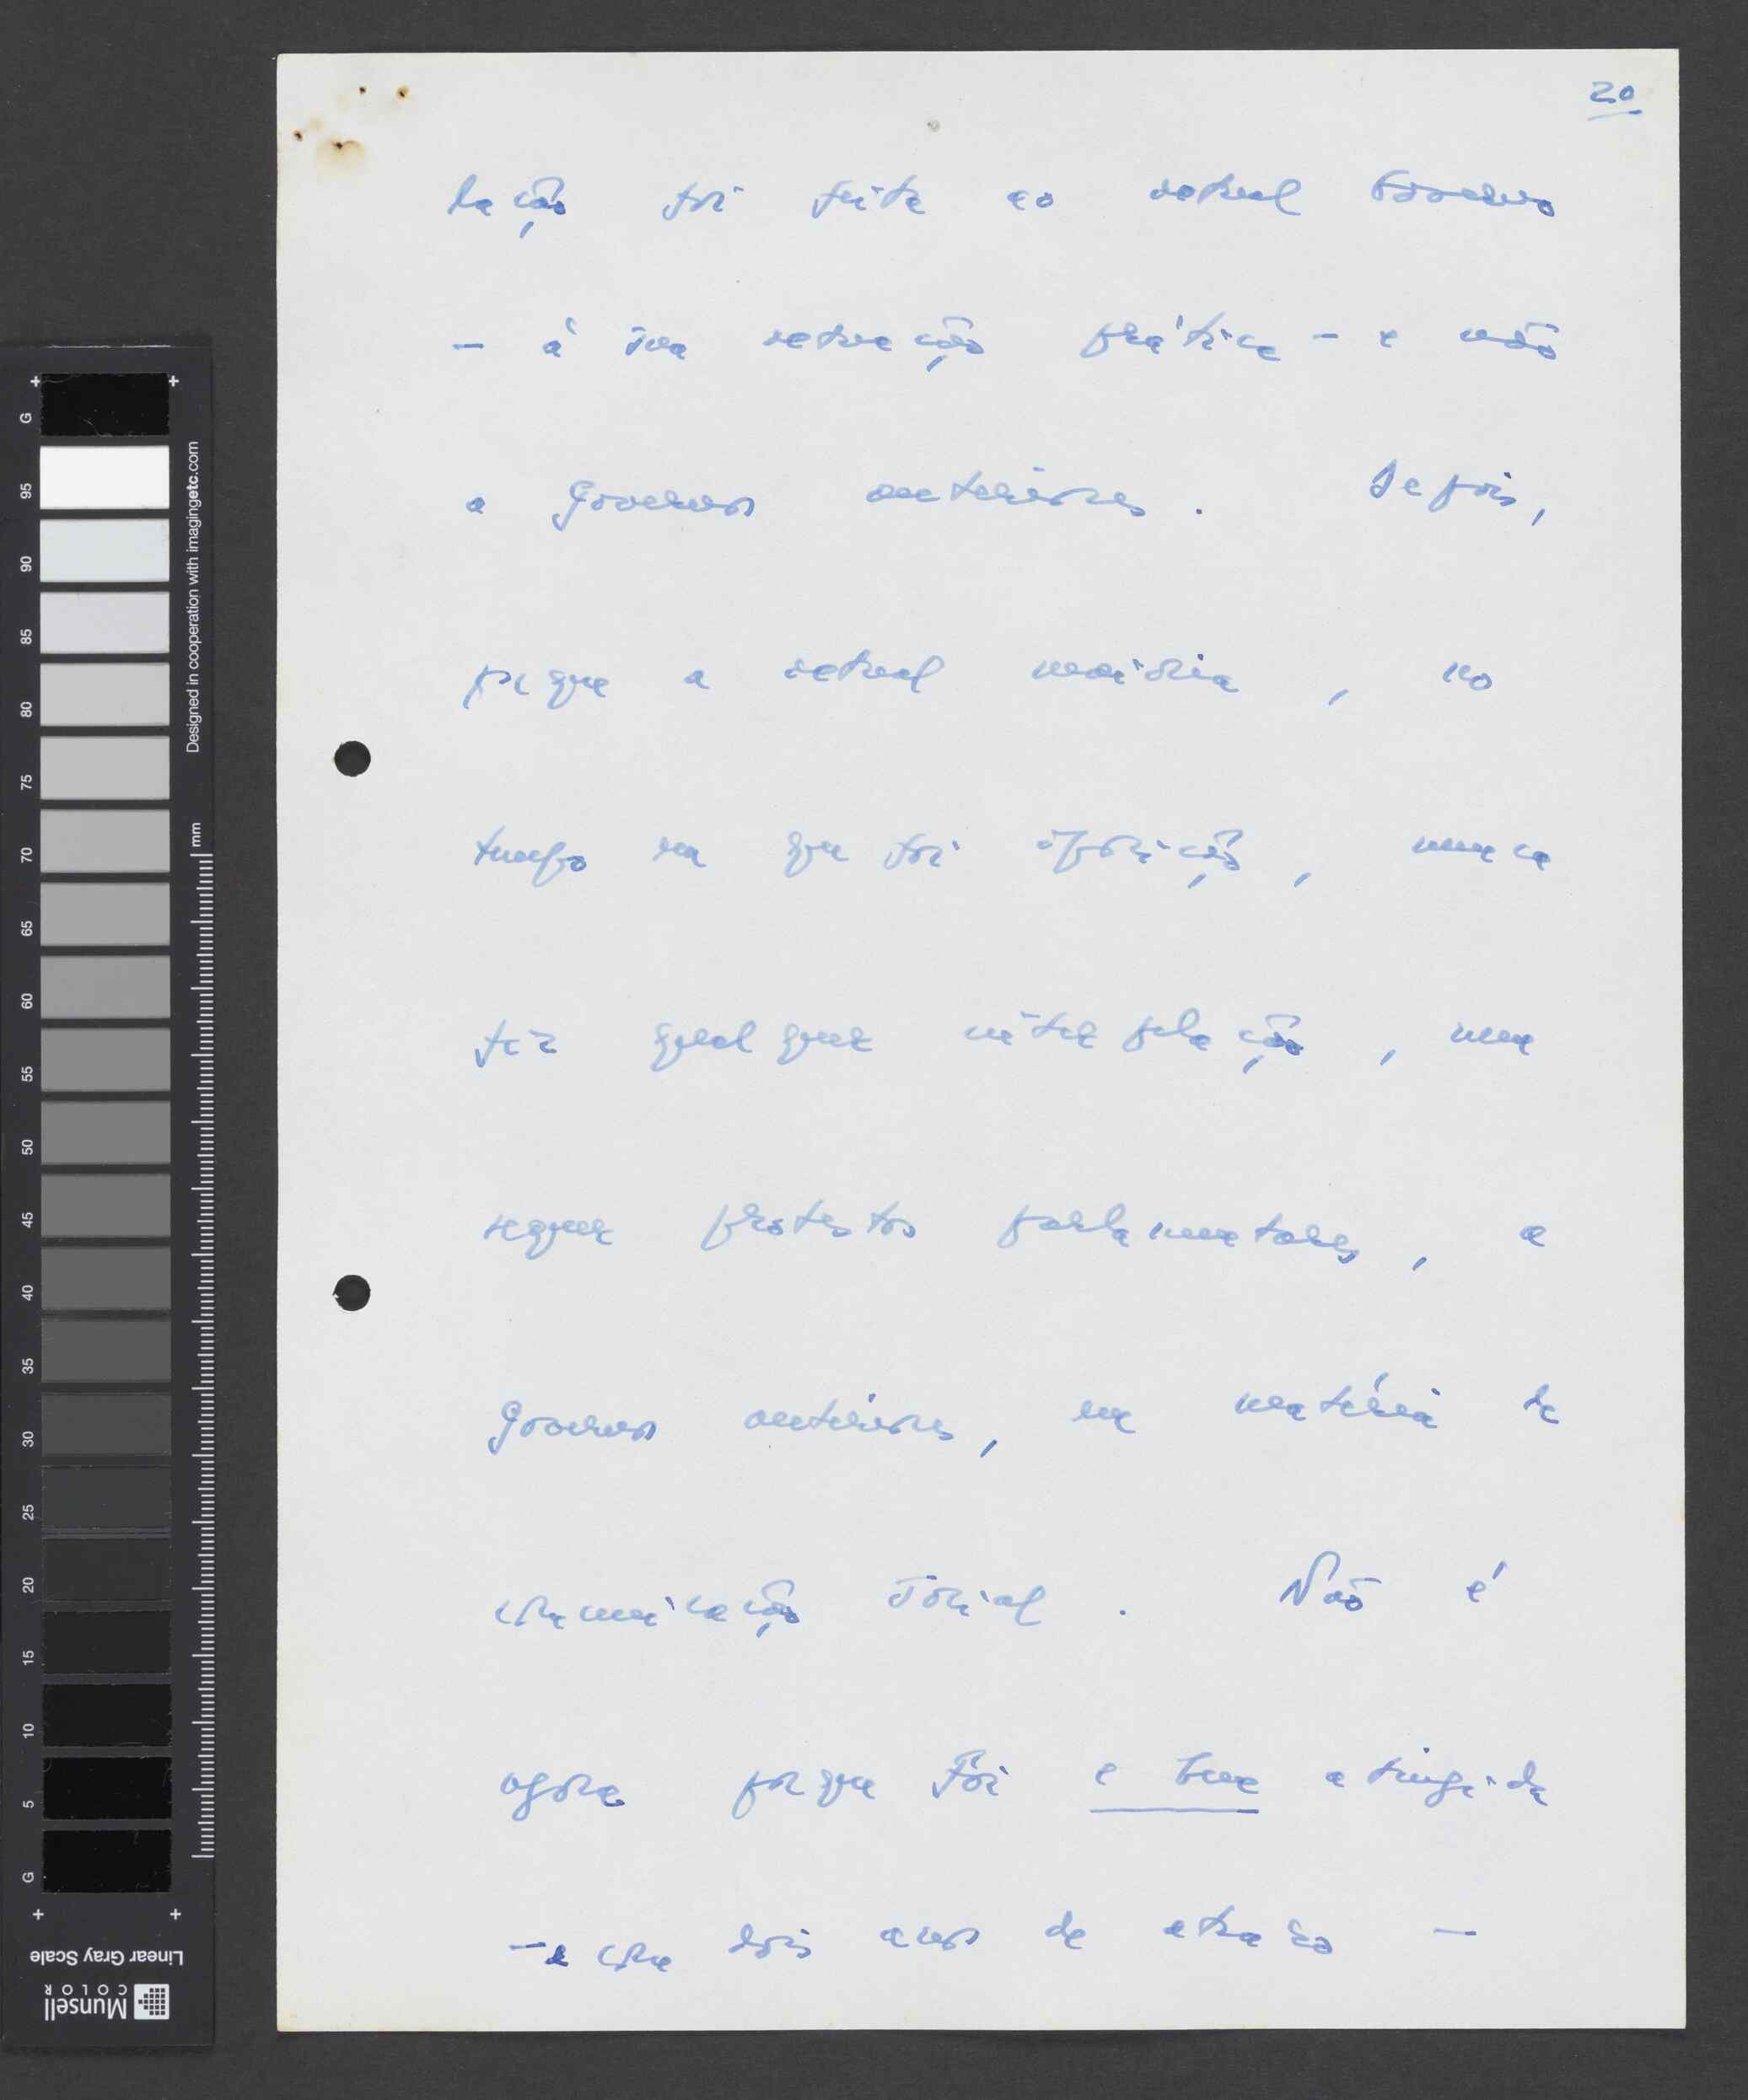 20
lação foi feita ao actual Governo
- à sua actuação prática - e não
a Governos anteriores. Depois,
porque a actual maioria, no
tempo em que foi oposição, nunca
fez qualquer interpelação, nem
sequer protestos parlamentares, a
Governos anteriores, em matéria de
comunicação social. Não é
agora porque foi e bem atingida
- e com dois anos de atraso -
G
95
90
85
80
75
70
65
60
55
50
45
40
35
30
25
20
15
10
5
G
Designed in cooperation with imagingetc.com
mm
Linear Gray Scale
Munsell
COLOR